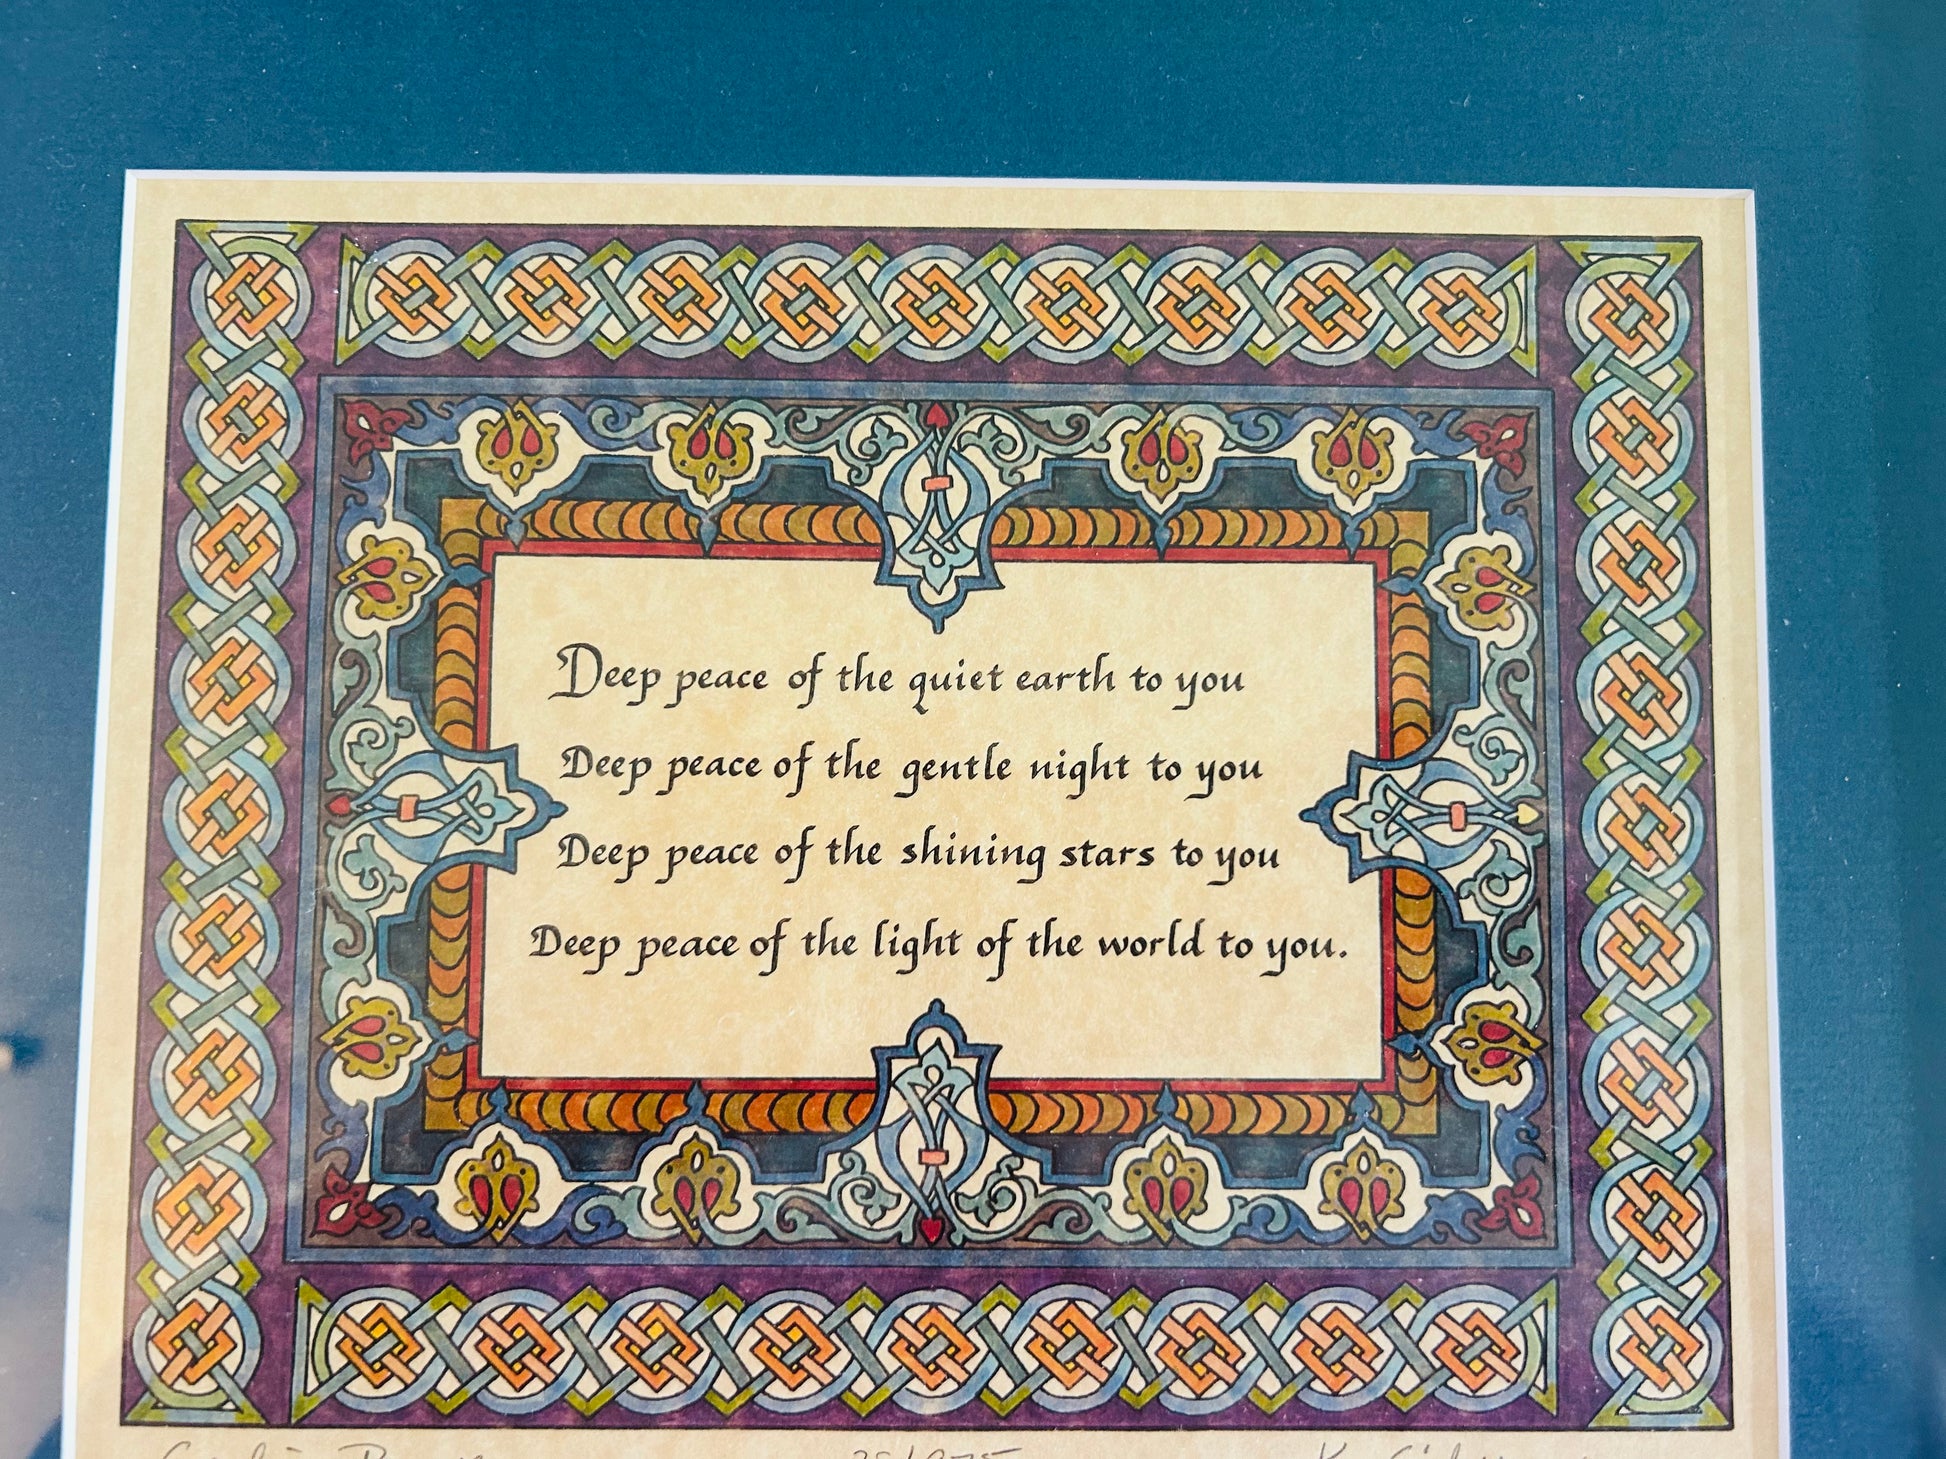 Deep peace of the quiet earth to you
Deep peace of the gentle night to you
Deep peace of the shining stars to you
Deep peace of the light of the world to you.